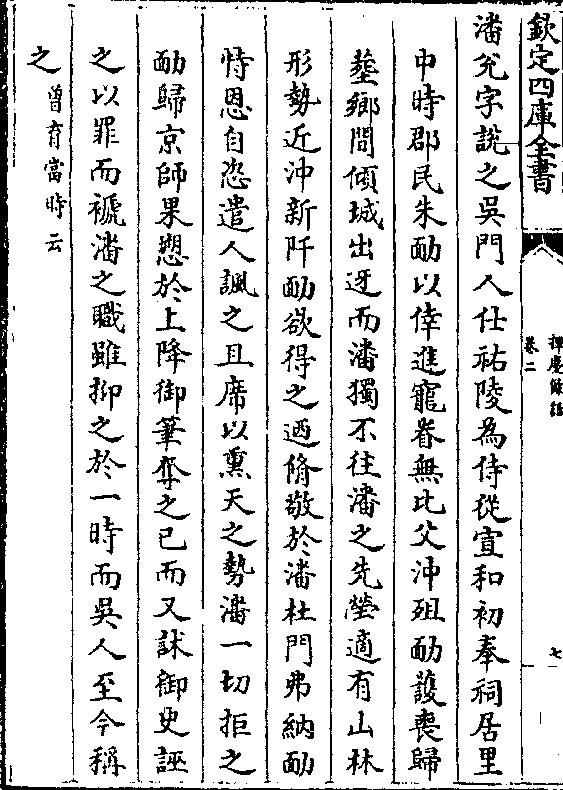 欽定四庫全書
揮麈餘話
卷二
七
潘兊字說之吳門人仕祐陵為侍從宣和初奉祠居里
中時郡民朱勔以倖進寵眷無比父沖殂勔護喪歸
塟鄉閭傾城出迓而潘獨不往潘之先塋適有山林
形勢近沖新阡勔欲得之迺脩敬於潘杜門弗納勔
恃恩自恣遣人諷之且席以熏天之勢潘一切拒之
勔歸京師果愬於上降御筆奪之已而又訹御史誣
之以罪而褫潘之職雖抑之於一時而吳人至今稱
之曾育當時云